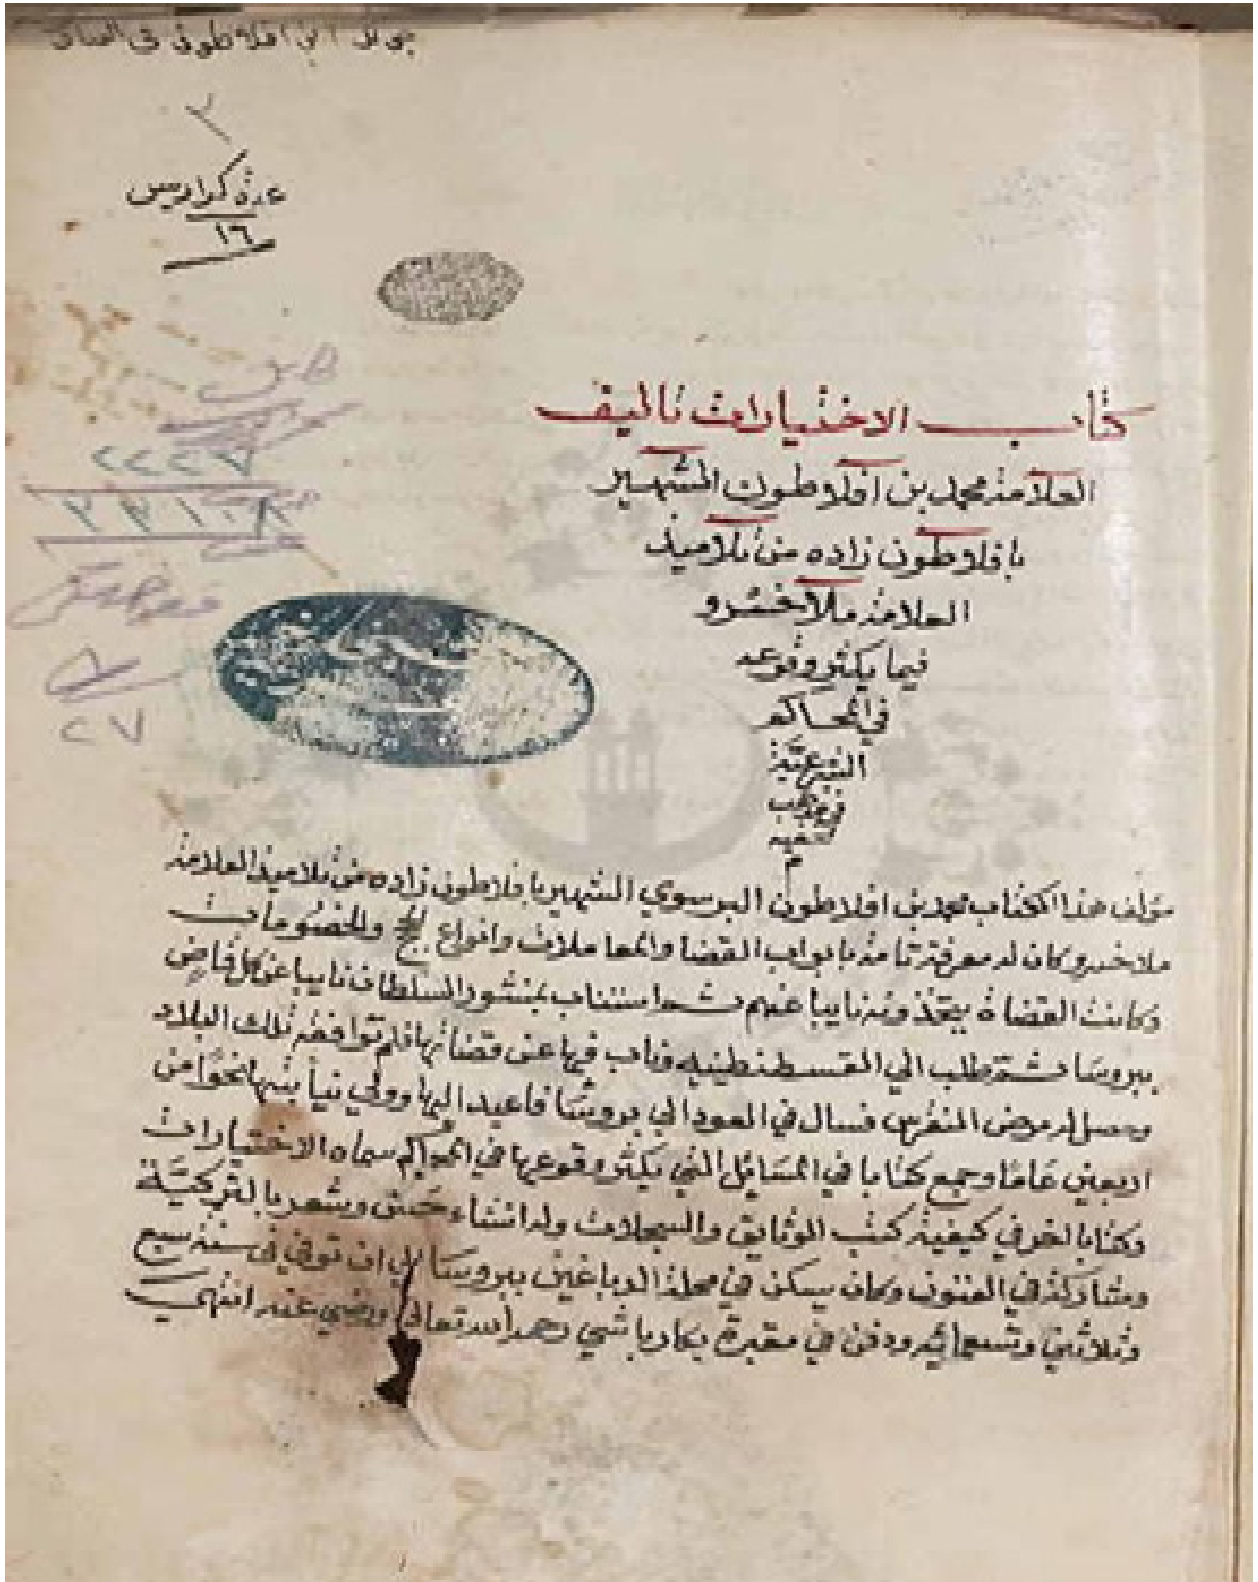 عدة كراريس
١٦
كتاب الاختيارات تاليف
العلامة محمد بن افلاطون الشهير
بافلاطون زاده من تلاميذ
العلامة ملا خسرو
فيما يكثر وقوعه
في المحاكم
الشرعية
م
مؤلف هذا الكتاب محمد بن افلاطون البرسوي الشهير بافلاطون زاده من تلاميذ العلامة
ملا خسرو كان له معرفة تامة بابواب القضا والمعاملات وانواع الحجج والخصومات
وكانت القضاة يتخذونه نايبا عنهم ثم استناب بمنشور السلطان نايبا عن كل قاض
ببروسا ثم طلب الي القسطنطينيه وناب فيها عن قضاتها فلم توافقه تلك البلاد
وحصل له مرض النقرس فسال في العود الي بروسا فاعيد اليها وولي نيابتها نحوا من
اربعين عاما وجمع كتابا في المسائل التي يكثر وقوعها في المحاكم سماه الاختيارات
وكتابا اخر في كيفية كتب الوثايق والسجلات وله انشاء حسن وشعر بالتركية
ومشاركة في الفنون وكان يسكن في محلة الدباغين ببروسا الي ان توفي في سنة سبع
وثلاثين وتسعمائة ودفن في مقبرة بكار باشي رحمه الله تعالي ورضي عنه انتهى